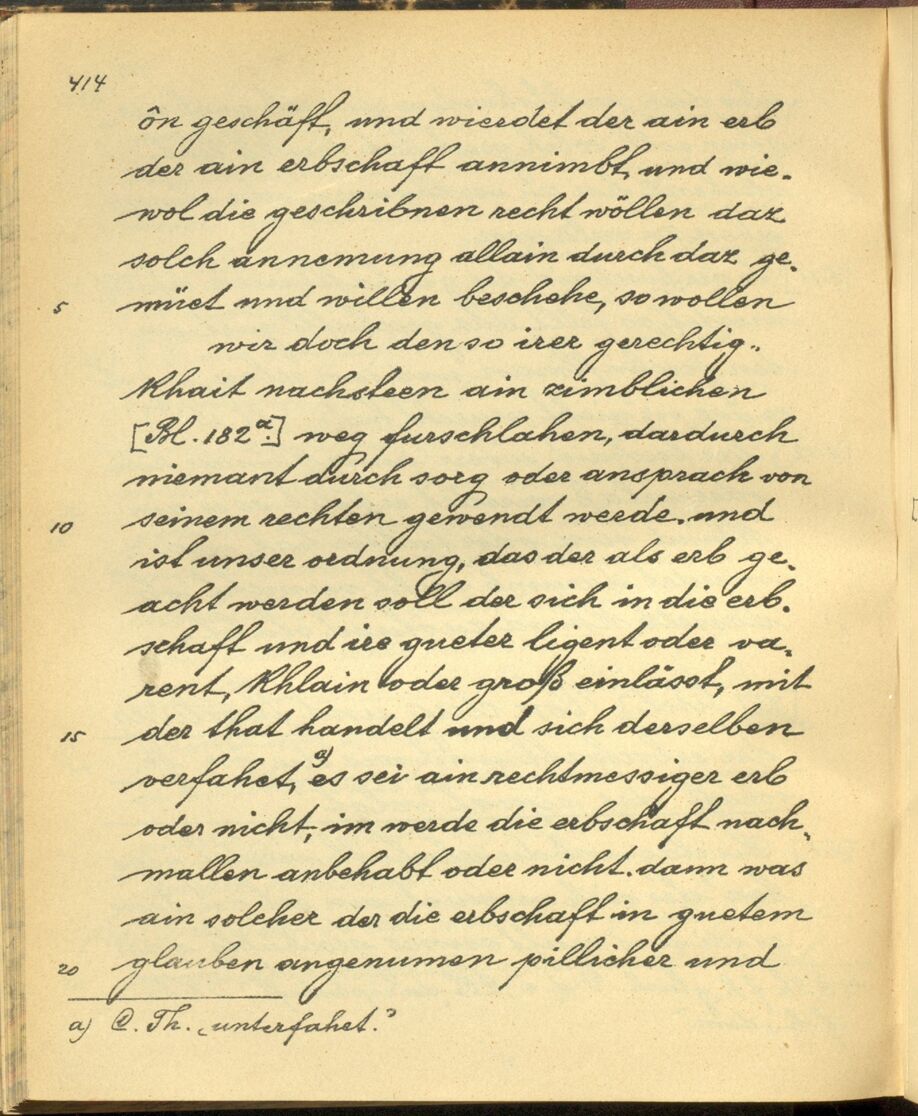 414
ôn geschäft, und wierdet der ain erb
der ain erbschaft annimbt, und wie-
wol die geschribnen recht wöllen daz
solch annemung allain durch daz ge-
5 müet und willen beschehe, so wollen
wir doch den so irer gerechtig-
khait nachsteen ain zimblichen
[Bl. 182a.] weg furschlahen, dardurch
niemant durch sorg oder ansprach von
10 seinem rechten gewendt werde. und
ist unser ordnung, das der als erb ge-
acht werden soll der sich in die erb-
schaft und ire gueter ligent oder va-
rent, khlain oder groß einlässt, mit
15 der that handelt und sich derselben
verfahet, a) es sei ain rechtmessiger erb
oder nicht, im werde die erbschaft nach-
mallen anbehabt oder nicht. dann was
ain solcher der die erbschaft in guetem
20 glauben angenumen pillicher und
a) C. Th. „unterfahet."